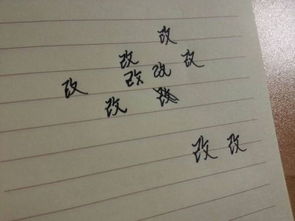 改
改 改
改 改 改
改
改 改